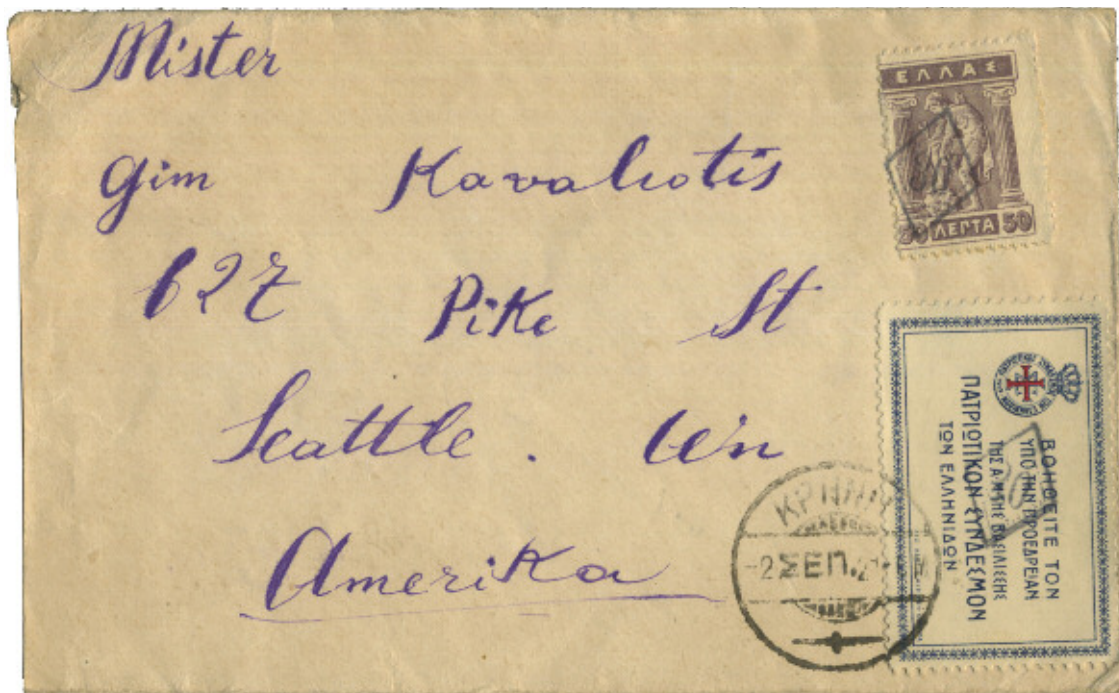 Mister
Gim Kavaliotis
627 Pike St
Seattle . Wn
Amerika
ΕΛΛΑΣ
50 ΛΕΠΤΑ 50
ΒΟΗΘΕΙΤΕ ΤΟΝ
ΥΠΟ ΤΗΝ ΠΡΟΕΔΡΕΙΑΝ
ΤΗΣ Α.Μ.ΤΗΣ ΒΑΣΙΛΙΣΣΗΣ
ΠΑΤΡΙΩΤΙΚΟΝ ΣΥΝΔΕΣΜΟΝ
ΤΩΝ ΕΛΛΗΝΙΔΩΝ
ΚΡΗΝΗ
-2 ΣΕΠ.